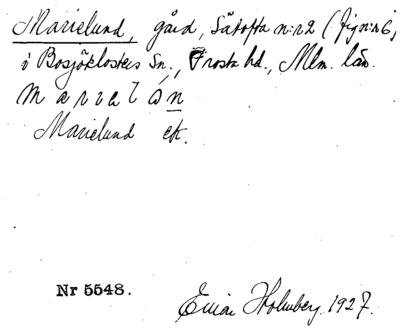 Marielund, gård, Sätofta n:r 2 (Jign:r 6)
i Bosjöklosters Sn., Frosta hd., Mlm. län.
Marielund ek.
Nr 5548.
Einar Holmberg. 1927.